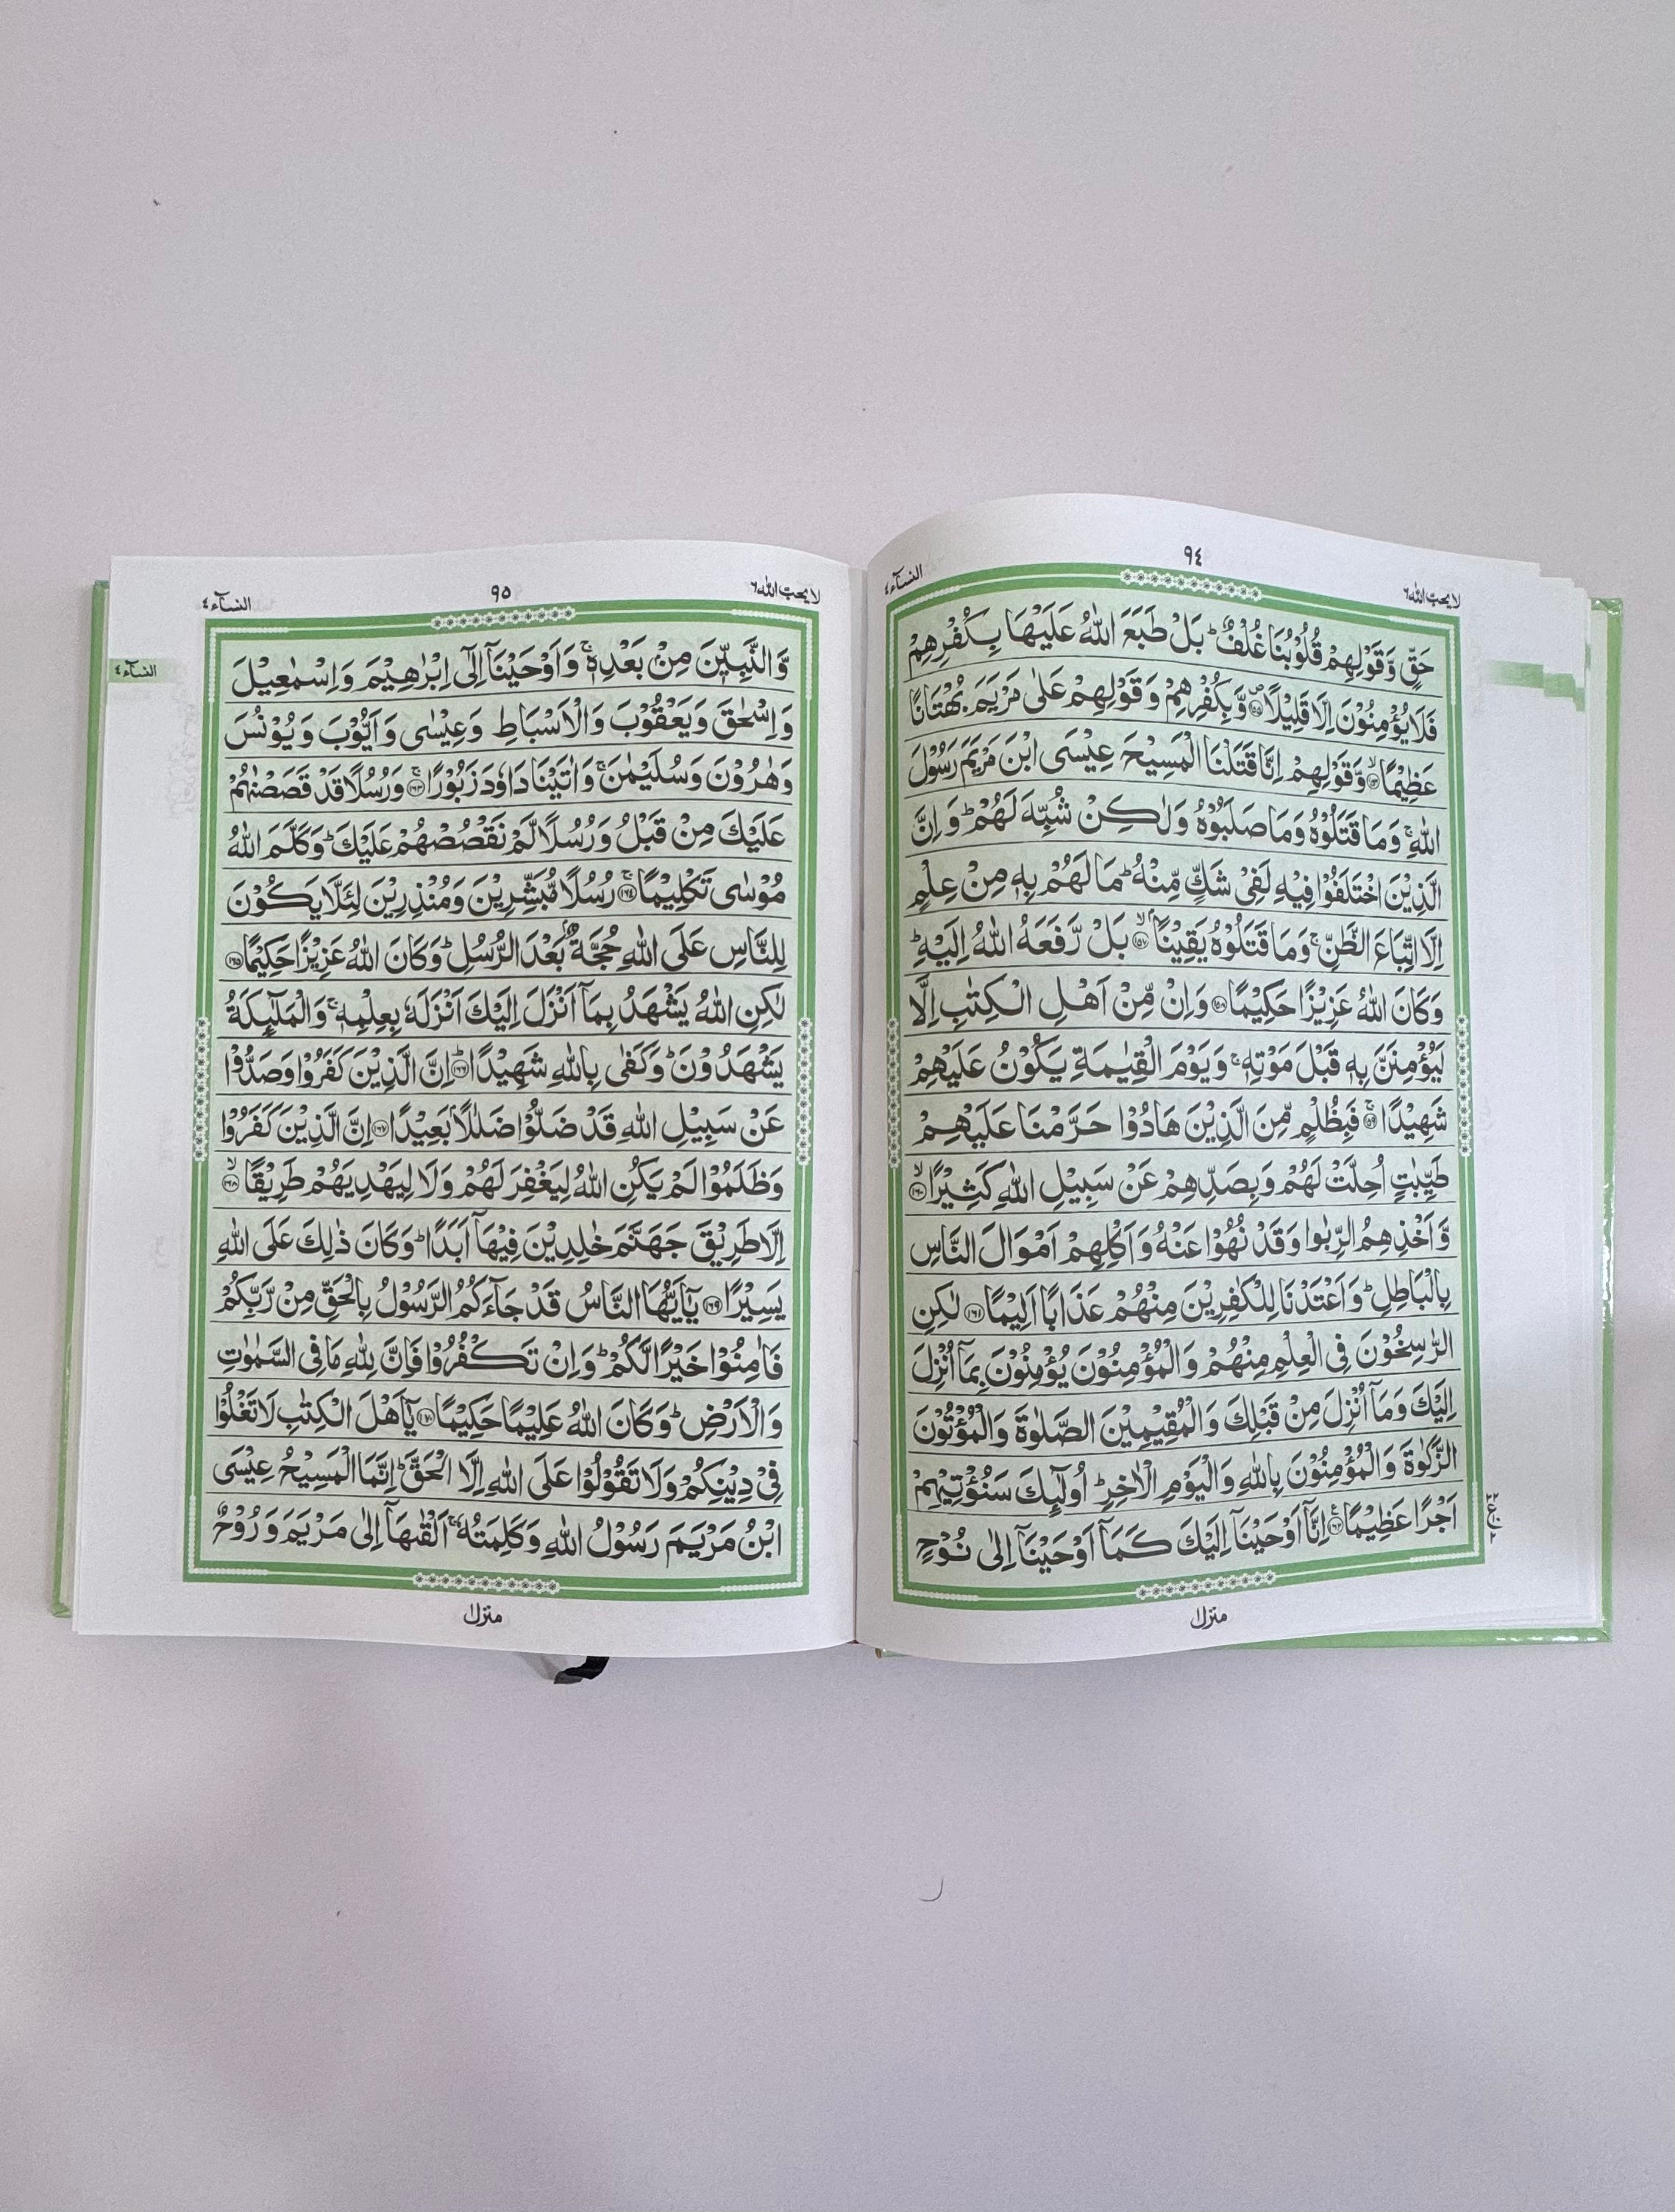 لا يحب الله ٦
٩٤
النسآء ٤
حَقٍّ وَّقَوْلِهِمْ قُلُوْبُنَا غُلْفٌ ؕ بَلْ طَبَعَ اللّٰهُ عَلَيْهَا بِكُفْرِهِمْ
فَلَا يُؤْمِنُوْنَ اِلَّا قَلِيْلًا ۪﴿۱۵۵﴾ وَّبِكُفْرِهِمْ وَقَوْلِهِمْ عَلٰى مَرْيَمَ بُهْتَانًا
عَظِيْمًا ۙ﴿۱۵۶﴾ وَّقَوْلِهِمْ اِنَّا قَتَلْنَا الْمَسِيْحَ عِيْسَى ابْنَ مَرْيَمَ رَسُوْلَ
اللّٰهِ ۚ وَمَا قَتَلُوْهُ وَمَا صَلَبُوْهُ وَلٰكِنْ شُبِّهَ لَهُمْ ؕ وَاِنَّ
الَّذِيْنَ اخْتَلَفُوْا فِيْهِ لَفِيْ شَكٍّ مِّنْهُ ؕ مَا لَهُمْ بِهٖ مِنْ عِلْمٍ
اِلَّا اتِّبَاعَ الظَّنِّ ۚ وَمَا قَتَلُوْهُ يَقِيْنًا ۢ ۙ﴿۱۵۷﴾ بَلْ رَّفَعَهُ اللّٰهُ اِلَيْهِ ؕ
وَكَانَ اللّٰهُ عَزِيْزًا حَكِيْمًا ﴿۱۵۸﴾ وَاِنْ مِّنْ اَهْلِ الْكِتٰبِ اِلَّا
لَيُؤْمِنَنَّ بِهٖ قَبْلَ مَوْتِهٖ ۚ وَيَوْمَ الْقِيٰمَةِ يَكُوْنُ عَلَيْهِمْ
شَهِيْدًا ۚ﴿۱۵۹﴾ فَبِظُلْمٍ مِّنَ الَّذِيْنَ هَادُوْا حَرَّمْنَا عَلَيْهِمْ
طَيِّبٰتٍ اُحِلَّتْ لَهُمْ وَبِصَدِّهِمْ عَنْ سَبِيْلِ اللّٰهِ كَثِيْرًا ۙ﴿۱۶۰﴾
وَّاَخْذِهِمُ الرِّبٰوا وَقَدْ نُهُوْا عَنْهُ وَاَكْلِهِمْ اَمْوَالَ النَّاسِ
بِالْبَاطِلِ ؕ وَاَعْتَدْنَا لِلْكٰفِرِيْنَ مِنْهُمْ عَذَابًا اَلِيْمًا ﴿۱۶۱﴾ لٰكِنِ
الرّٰسِخُوْنَ فِي الْعِلْمِ مِنْهُمْ وَالْمُؤْمِنُوْنَ يُؤْمِنُوْنَ بِمَاۤ اُنْزِلَ
اِلَيْكَ وَمَاۤ اُنْزِلَ مِنْ قَبْلِكَ وَالْمُقِيْمِيْنَ الصَّلٰوةَ وَالْمُؤْتُوْنَ
الزَّكٰوةَ وَالْمُؤْمِنُوْنَ بِاللّٰهِ وَالْيَوْمِ الْاٰخِرِ ؕ اُولٰٓئِكَ سَنُؤْتِيْهِمْ
اَجْرًا عَظِيْمًا ﴿۱۶۲﴾ اِنَّاۤ اَوْحَيْنَاۤ اِلَيْكَ كَمَاۤ اَوْحَيْنَاۤ اِلٰى نُوْحٍ
منزل ١
لا يحب الله ٦
٩٥
النسآء ٤
النسآء ٤
وَّالنَّبِيّٖنَ مِنْ بَعْدِهٖ ۚ وَاَوْحَيْنَاۤ اِلٰۤى اِبْرٰهِيْمَ وَاِسْمٰعِيْلَ
وَاِسْحٰقَ وَيَعْقُوْبَ وَالْاَسْبَاطِ وَعِيْسٰى وَاَيُّوْبَ وَيُوْنُسَ
وَهٰرُوْنَ وَسُلَيْمٰنَ ۚ وَاٰتَيْنَا دَاوٗدَ زَبُوْرًا ۚ﴿۱۶۳﴾ وَرُسُلًا قَدْ قَصَصْنٰهُمْ
عَلَيْكَ مِنْ قَبْلُ وَرُسُلًا لَّمْ نَقْصُصْهُمْ عَلَيْكَ ؕ وَكَلَّمَ اللّٰهُ
مُوْسٰى تَكْلِيْمًا ۚ﴿۱۶۴﴾ رُسُلًا مُّبَشِّرِيْنَ وَمُنْذِرِيْنَ لِئَلَّا يَكُوْنَ
لِلنَّاسِ عَلَى اللّٰهِ حُجَّةٌۢ بَعْدَ الرُّسُلِ ؕ وَكَانَ اللّٰهُ عَزِيْزًا حَكِيْمًا ﴿۱۶۵﴾
لٰكِنِ اللّٰهُ يَشْهَدُ بِمَاۤ اَنْزَلَ اِلَيْكَ اَنْزَلَهٗ بِعِلْمِهٖ ۚ وَالْمَلٰٓئِكَةُ
يَشْهَدُوْنَ ؕ وَكَفٰى بِاللّٰهِ شَهِيْدًا ؕ﴿۱۶۶﴾ اِنَّ الَّذِيْنَ كَفَرُوْا وَصَدُّوْا
عَنْ سَبِيْلِ اللّٰهِ قَدْ ضَلُّوْا ضَلٰلًاۢ بَعِيْدًا ﴿۱۶۷﴾ اِنَّ الَّذِيْنَ كَفَرُوْا
وَظَلَمُوْا لَمْ يَكُنِ اللّٰهُ لِيَغْفِرَ لَهُمْ وَلَا لِيَهْدِيَهُمْ طَرِيْقًا ۙ﴿۱۶۸﴾
اِلَّا طَرِيْقَ جَهَنَّمَ خٰلِدِيْنَ فِيْهَاۤ اَبَدًا ؕ وَكَانَ ذٰلِكَ عَلَى اللّٰهِ
يَسِيْرًا ﴿۱۶۹﴾ يٰۤاَيُّهَا النَّاسُ قَدْ جَآءَكُمُ الرَّسُوْلُ بِالْحَقِّ مِنْ رَّبِّكُمْ
فَاٰمِنُوْا خَيْرًا لَّكُمْ ؕ وَاِنْ تَكْفُرُوْا فَاِنَّ لِلّٰهِ مَا فِي السَّمٰوٰتِ
وَالْاَرْضِ ؕ وَكَانَ اللّٰهُ عَلِيْمًا حَكِيْمًا ﴿۱۷۰﴾ يٰۤاَهْلَ الْكِتٰبِ لَا تَغْلُوْا
فِيْ دِيْنِكُمْ وَلَا تَقُوْلُوْا عَلَى اللّٰهِ اِلَّا الْحَقَّ ؕ اِنَّمَا الْمَسِيْحُ عِيْسَى
ابْنُ مَرْيَمَ رَسُوْلُ اللّٰهِ وَكَلِمَتُهٗ ۚ اَلْقٰىهَاۤ اِلٰى مَرْيَمَ وَرُوْحٌ
منزل ١